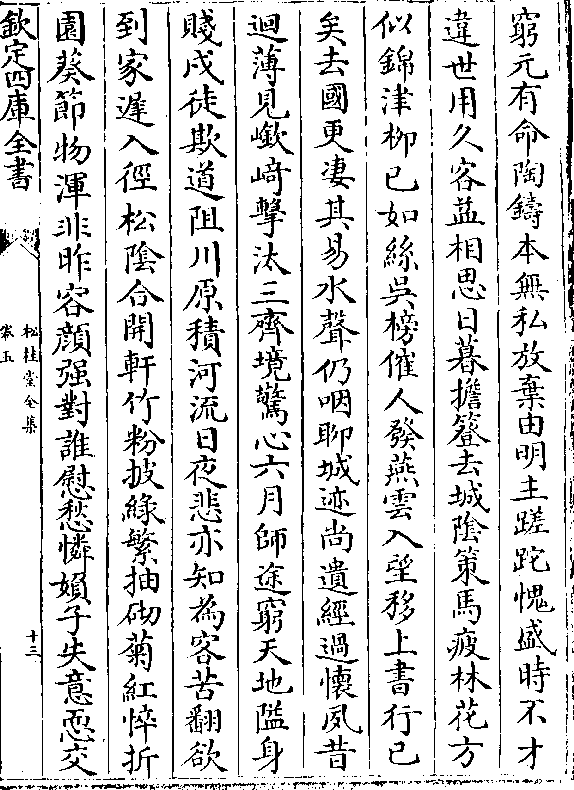 窮元有命陶鑄本無私放棄由明主蹉跎愧盛時不才
違世用久客益相思日暮擔簦去城陰策馬疲林花方
似錦津柳已如絲吳榜催人發燕雲入望移上書行已
矣去國更淒其易水聲仍咽聊城迹尚遺經過懷夙昔
迴薄見嶔﨑擊汰三齊境驚心六月師途窮天地隘身
賤戍徒欺道阻川原積河流日夜悲亦知為客苦翻欲
到家遲入徑松陰合開軒竹粉披綠繁抽砌菊紅悴折
園葵節物渾非昨容顔强對誰慰愁憐嬪子失意恧交
欽定四庫全書
松桂堂全集
卷五
十三